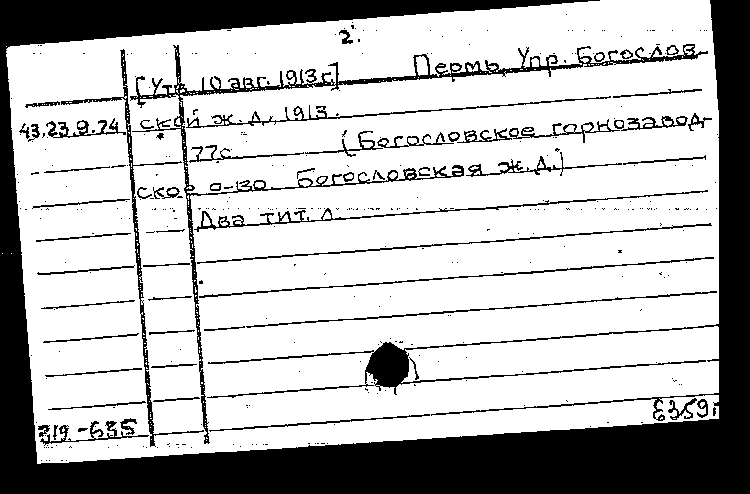 2.
[Утв. 10 авг. 1913 г.] Пермь, Упр. Богослов-
43.23.9.74 ской ж. д., 1913.
77 с. (Богословское горнозавод-
ское о-во. Богословская ж. д.)
Два тит. л.
319-635
6359г